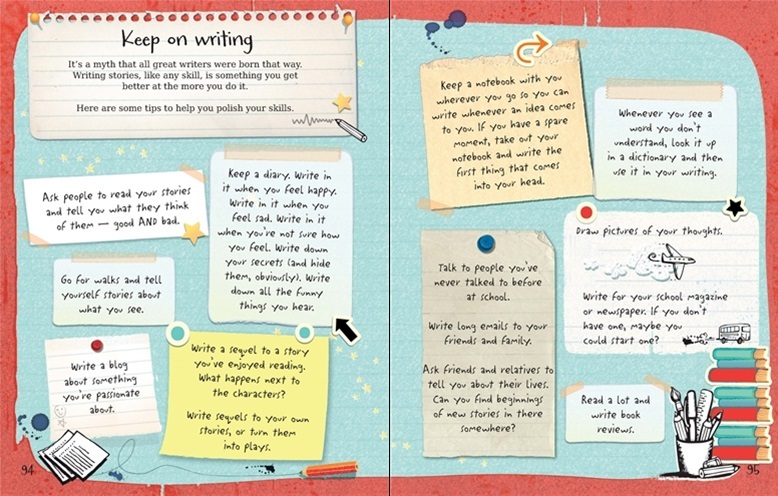 Keep on writing
It's a myth that all great writers were born that way.
Writing stories, like any skill, is something you get
better at the more you do it.
Here are some tips to help you polish your skills.
Ask people to read your stories
and tell you what they think
of them — good AND bad.
Keep a diary. Write in
it when you feel happy.
Write in it when you
feel sad. Write in it
when you're not sure how
you feel. Write down
your secrets (and hide
them, obviously). Write
down all the funny
things you hear.
Go for walks and tell
yourself stories about
what you see.
Write a blog
about something
you're passionate
about.
Write a sequel to a story
you've enjoyed reading.
What happens next to
the characters?
Write sequels to your own
stories, or turn them
into plays.
94
Keep a notebook with you
wherever you go so you can
write whenever an idea comes
to you. If you have a spare
moment, take out your
notebook and write the
first thing that comes
into your head.
Whenever you see a
word you don't
understand, look it up
in a dictionary and then
use it in your writing.
Talk to people you've
never talked to before
at school.
Write long emails to your
friends and family.
Ask friends and relatives to
tell you about their lives.
Can you find beginnings
of new stories in there
somewhere?
Draw pictures of your thoughts.
Write for your school magazine
or newspaper. If you don't
have one, maybe you
could start one?
Read a lot and
write book
reviews.
95